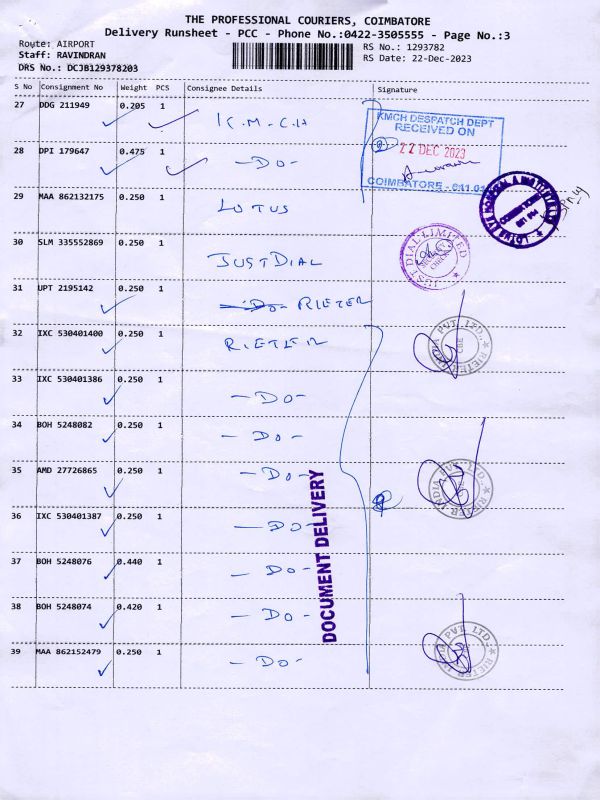 THE PROFESSIONAL COURIERS, COIMBATORE
Delivery Runsheet - PCC - Phone No.:0422-3505555 - Page No.:3
Route: AIRPORT
RS No.: 1293782
Staff: RAVINDRAN
RS Date: 22-Dec-2023
DRS No.: DCJB129378203
S No Consignment No Weight PCS Consignee Details Signature
27 DDG 211949 0.205 1 K.M.C.H
KMCH DESPATCH DEPT
RECEIVED ON
22 DEC 2023
COIMBATORE - 641 01
28 DPI 179647 0.475 1 -DO-
29 MAA 862132175 0.250 1 LOTUS
30 SLM 335552869 0.250 1 JUSTDIAL
JUST DIAL LIMITED
31 UPT 2195142 0.250 1 -DO- RIETER
32 IXC 530401400 0.250 1 RIETER
RIETER INDIA PVT. LTD.
33 IXC 530401386 0.250 1 -DO-
34 BOH 5248082 0.250 1 -DO-
35 AMD 27726865 0.250 1 -DO-
RIETER INDIA PVT. LTD.
36 IXC 530401387 0.250 1 -DO-
DOCUMENT DELIVERY
37 BOH 5248076 0.440 1 -DO-
38 BOH 5248074 0.420 1 -DO-
39 MAA 862152479 0.250 1 -DO-
RIETER INDIA PVT. LTD.